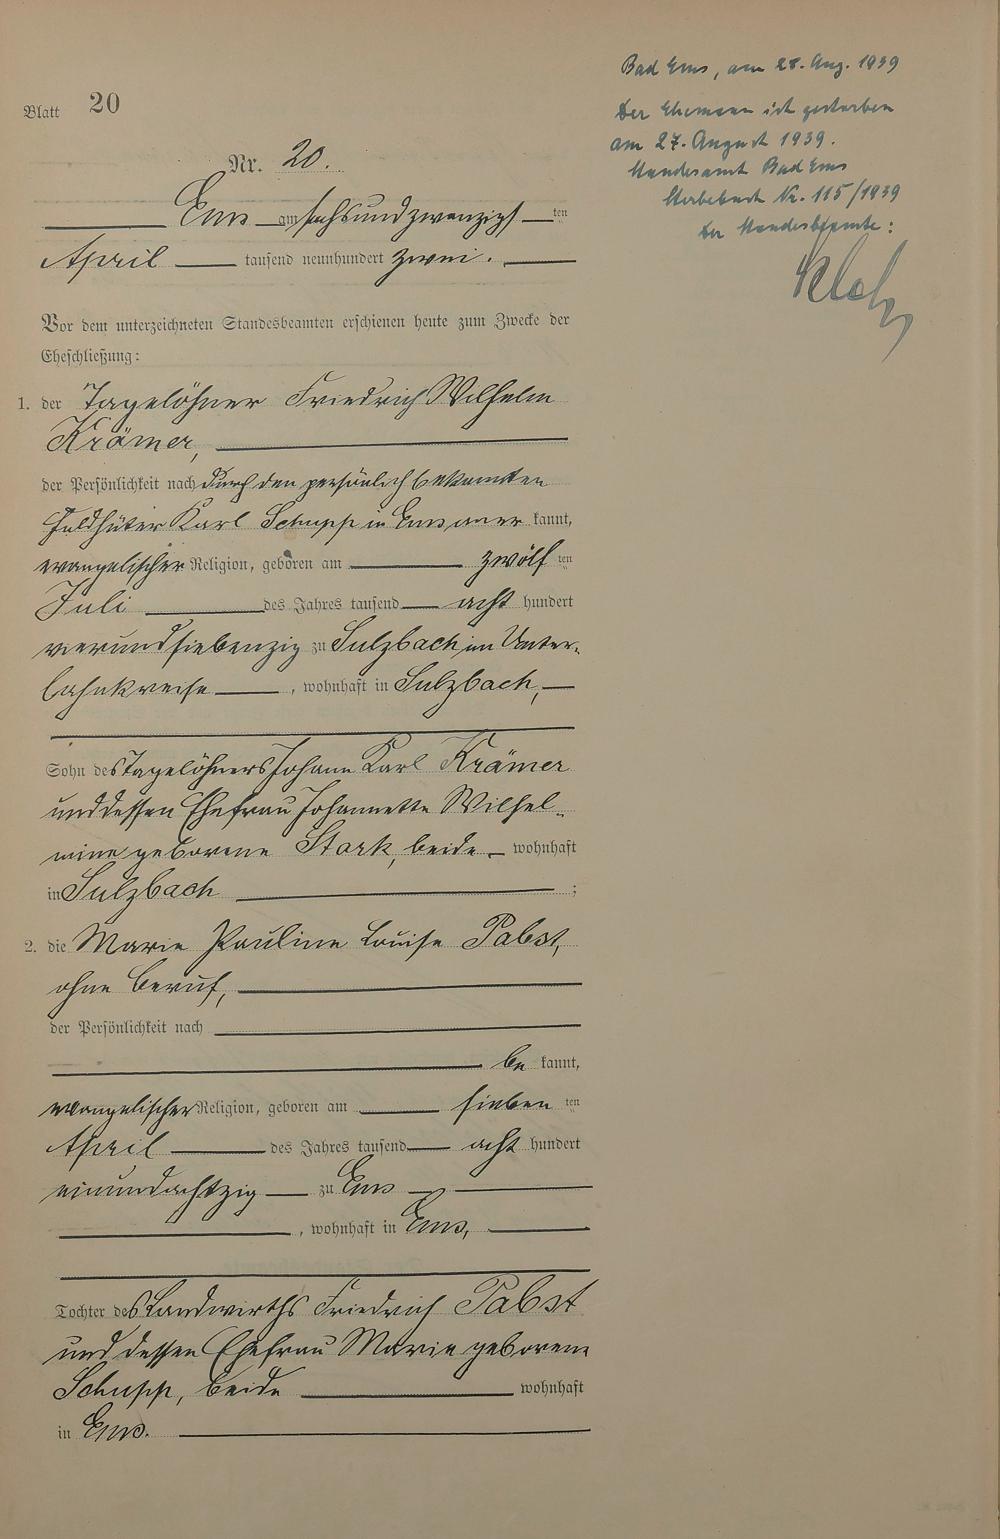 Blatt 20
Nr. 20.
Ems am sechsundzwanzigsten
April tausend neunhundert zwei.
Vor dem unterzeichneten Standesbeamten erschienen heute zum Zwecke der
Eheschließung:
1. der Tagelöhner Friedrich Wilhelm
Krämer,
der Persönlichkeit nach durch den persönlich bekannten
Feldhüter Karl Schupp in Ems aner kannt,
evangelischer Religion, geboren am zwölf ten
Juli des Jahres tausend acht hundert
vierundsiebenzig zu Sulzbach im Unter-
lahnkreise, wohnhaft in Sulzbach,
Sohn des Tagelöhners Johann Karl Krämer
und dessen Ehefrau Johannette Wilhel-
mine geborene Stark, beide wohnhaft
in Sulzbach ;
2. die Marie Pauline Louise Pabst,
ohne Beruf,
der Persönlichkeit nach
be kannt,
evangelischer Religion, geboren am sieben ten
April des Jahres tausend acht hundert
einundachtzig zu Ems
, wohnhaft in Ems,
Tochter des Landwirths Friedrich Pabst
und dessen Ehefrau Marie geborene
Schupp, beide wohnhaft
in Ems.
Bad Ems, am 28. Aug. 1939
Der Ehemann ist gestorben
am 27. August 1939.
Standesamt Bad Ems
Sterbebuch Nr. 115/1939
Der Standesbeamte: